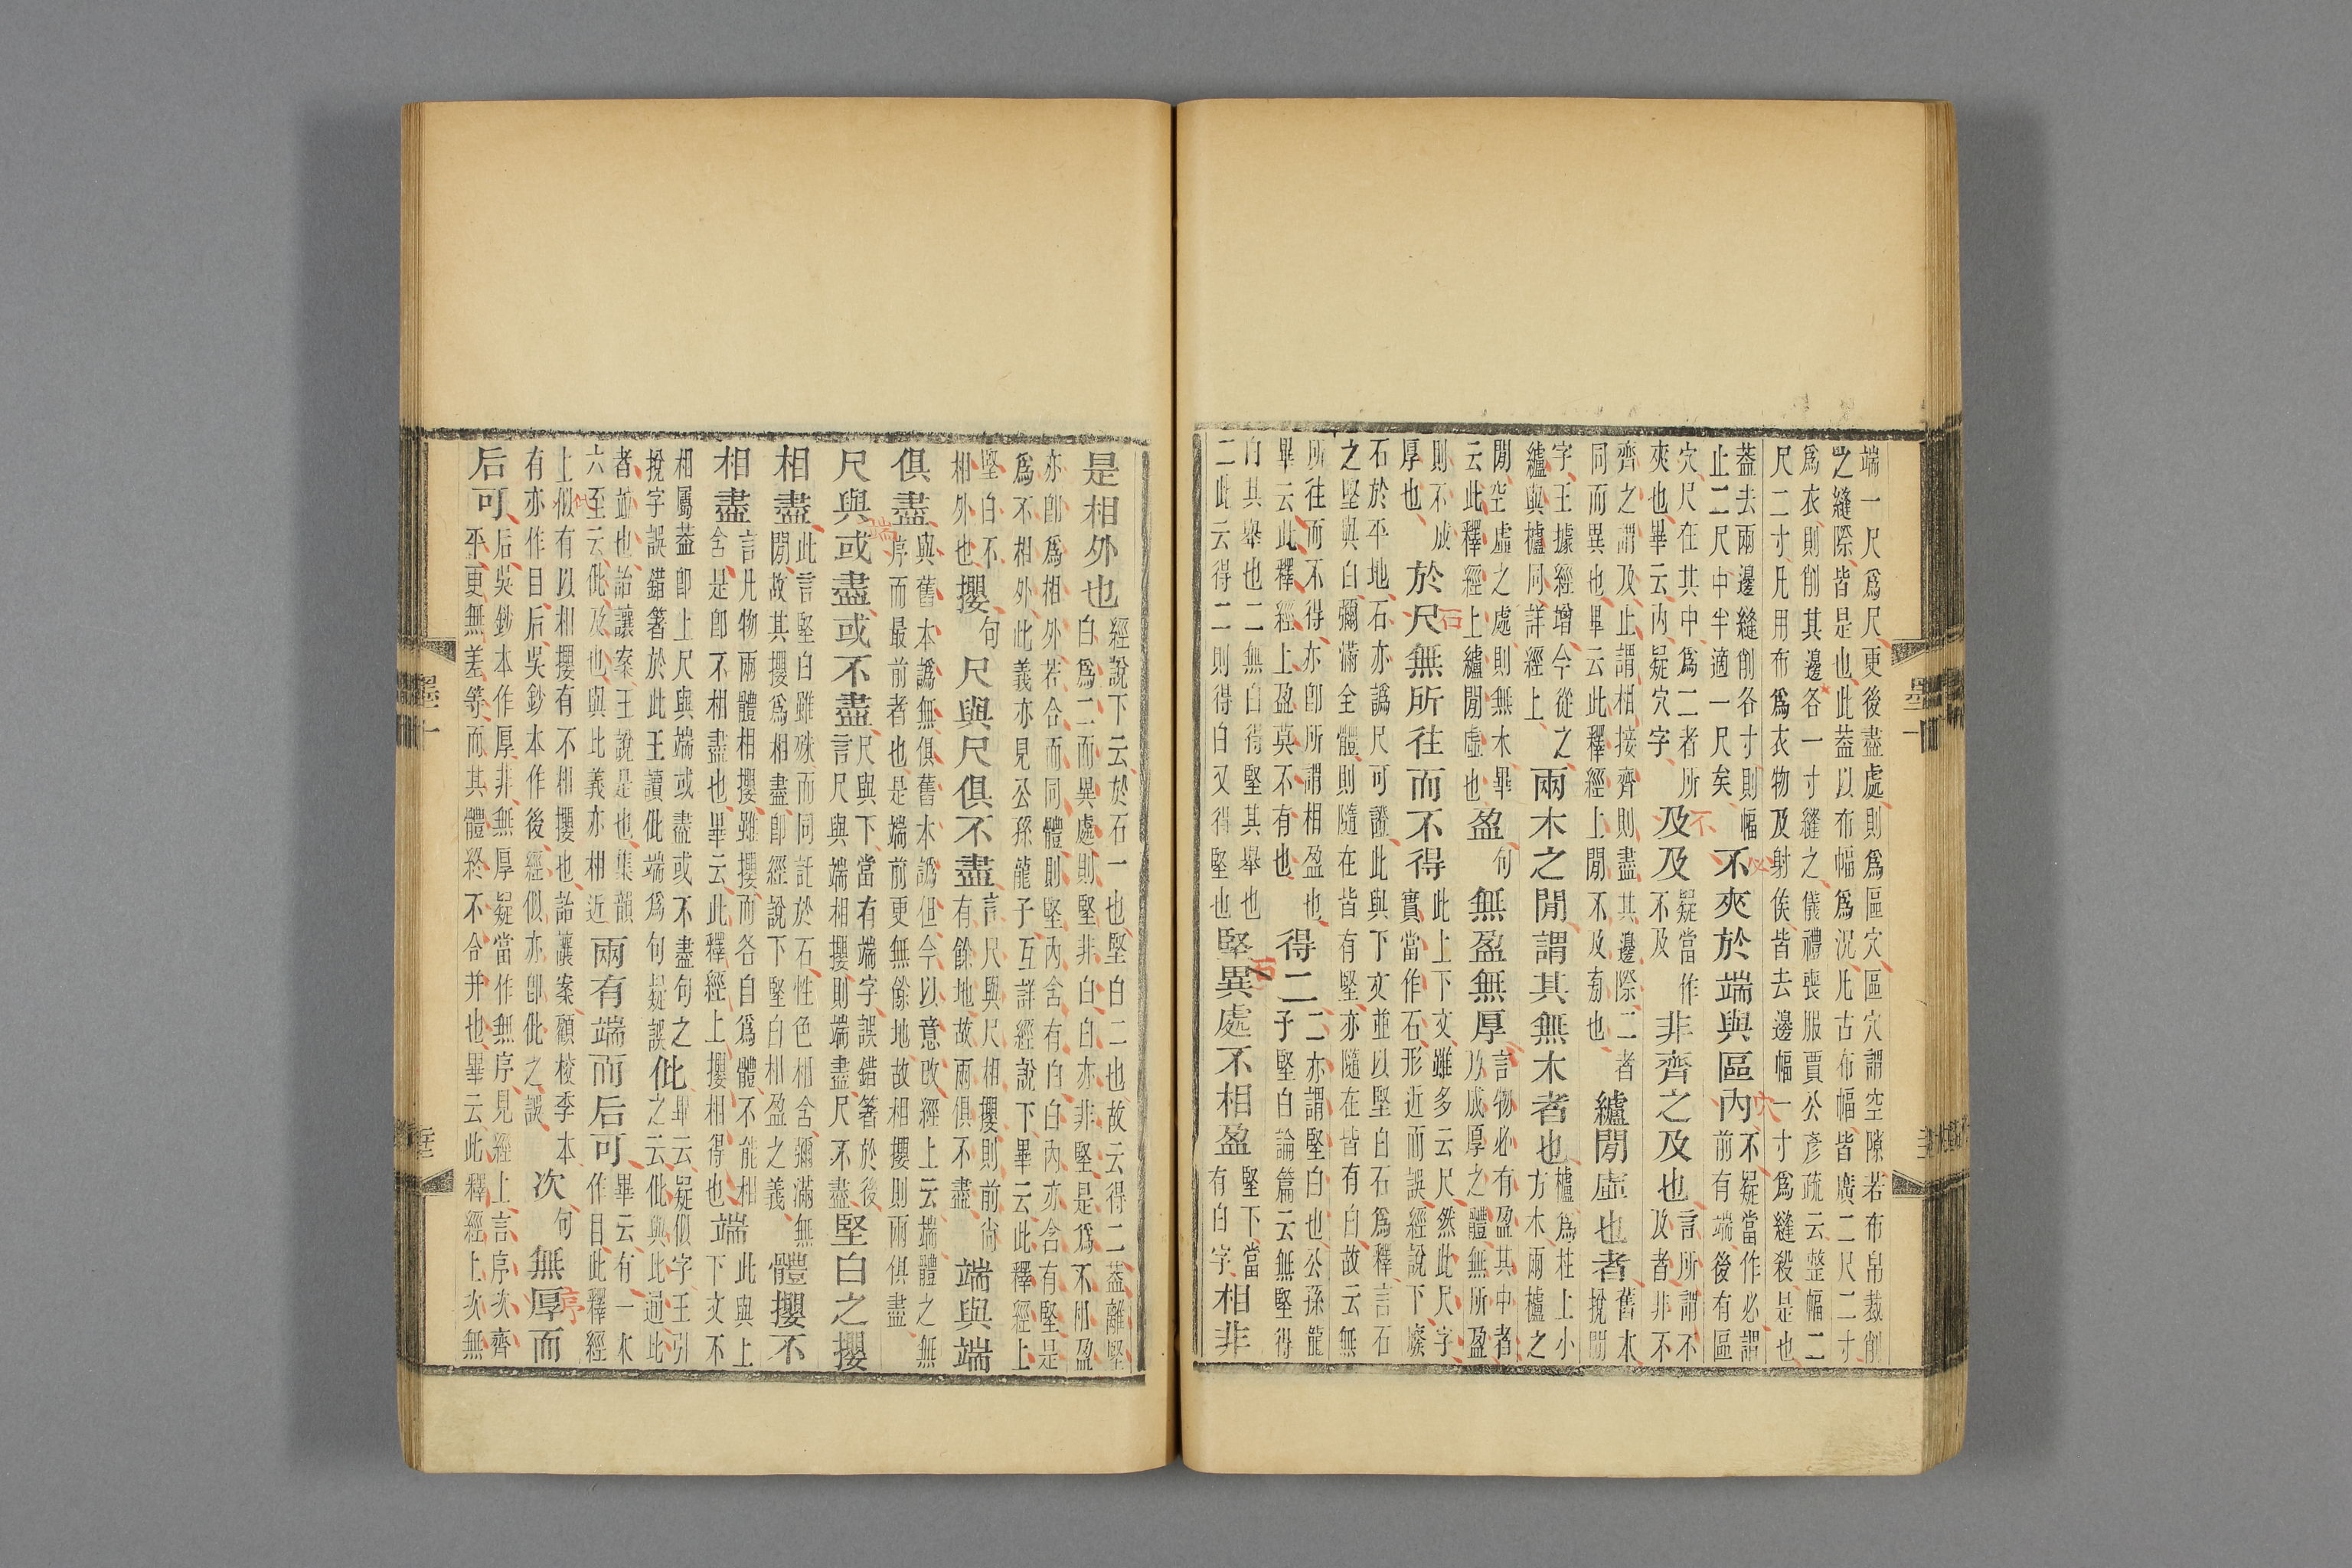 端一尺爲尺更後盡處則爲區穴區穴謂空隙若布帛裁削
之縫際皆是也此葢以布幅爲況凡古布幅皆廣二尺二寸
爲衣則削其邊各一寸縫之儀禮喪服賈公彥疏云整幅二
尺二寸凡用布爲衣物及射侯皆去邊幅一寸爲縫殺是也
葢去兩邊縫削各寸則幅
止二尺中半適一尺矣
不夾於端與區內
必
穴
不疑當作必謂
前有端後有區
穴尺在其中爲二者所
夾也畢云內疑穴字
及及
不
疑當作
不及
非齊之及也
言所謂不
及者非不
齊之謂及止謂相接齊則盡其邊際二者
同而異也畢云此釋經上閒不及㫄也
纑閒虛也者
舊本
挩閒
字王據經增今從之
纑與櫨同詳經上
兩木之閒謂其無木者也
櫨爲柱上小
方木兩櫨之
閒空虛之處則無木畢
云此釋經上纑閒虛也
盈
句
無盈無厚
言物必有盈其中者
乃成厚之體無所盈
則不成
厚也
於尺無所往而不得
石
此上下文雖多云尺然此尺字
實當作石形近而誤經說下
石於平地石亦譌尺可證此與下文並以堅白石爲釋言石
之堅與白彌滿全體則隨在皆有堅亦隨在皆有白故云無
所往而不得亦卽所謂相盈也
畢云此釋經上盈莫不有也
得二
二亦謂堅白也公孫龍
子堅白論篇云無堅得
白其舉也二無白得堅其舉也
二此云得二則得白又得堅也
堅異處不相盈
石
堅下當
有白字
相非
是相外也
經說下云於石一也堅白二也故云得二葢離堅
白爲二而異處則堅非白白亦非堅是爲不相盈
亦卽爲相外若合而同體則堅內含有白白內亦含有堅是
爲不相外此義亦見公孫龍子互詳經說下畢云此釋經上
堅白不
相外也
攖
句
尺與尺俱不盡
言尺與尺相攖則前尙
有餘地故兩俱不盡
端與端
俱盡
與舊本譌無俱舊本譌但今以意改經上云端體之無
序而最前者也是端前更無餘地故相攖則兩俱盡
尺與或盡或不盡
端
尺與下當有端字誤錯箸於後
言尺與端相攖則端盡尺不盡
堅白之攖
相盡
此言堅白雖殊而同託於石性色相含彌滿無
閒故其攖爲相盡卽經說下堅白相盈之義
體攖不
相盡
言凡物兩體相攖雖攖而各自爲體不能相
含是卽不相盡也畢云此釋經上攖相得也
端
此與上
下文不
相屬葢卽上尺與端或盡或不盡句之
挩字誤錯箸於此王讀仳端爲句疑誤
仳
畢云疑似字王引
之云仳與此通此
者竝也詒讓案王說是也集韻
六至云仳及也與此義亦相近
兩有端而后可
畢云有一本
作目此釋經
上似有以相攖有不相攖也詒讓案顧校季本
有亦作目后吳鈔本作後經似亦卽仳之誤
次
句
無厚而
序
后可
后吳鈔本作厚非無厚疑當作無序見經上言序次齊
平更無差等而其體終不合并也畢云此釋經上次無